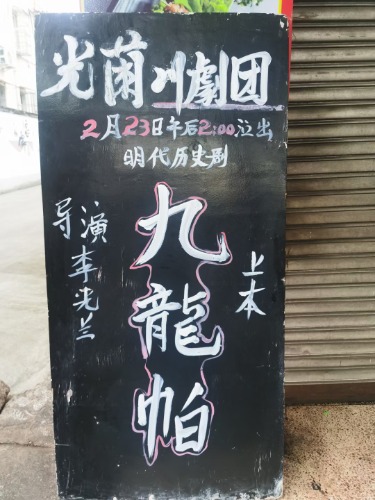 光菌川劇团
2月23日午后2:00泣出
明代历史剧
九龍帕
上本
导演李光兰